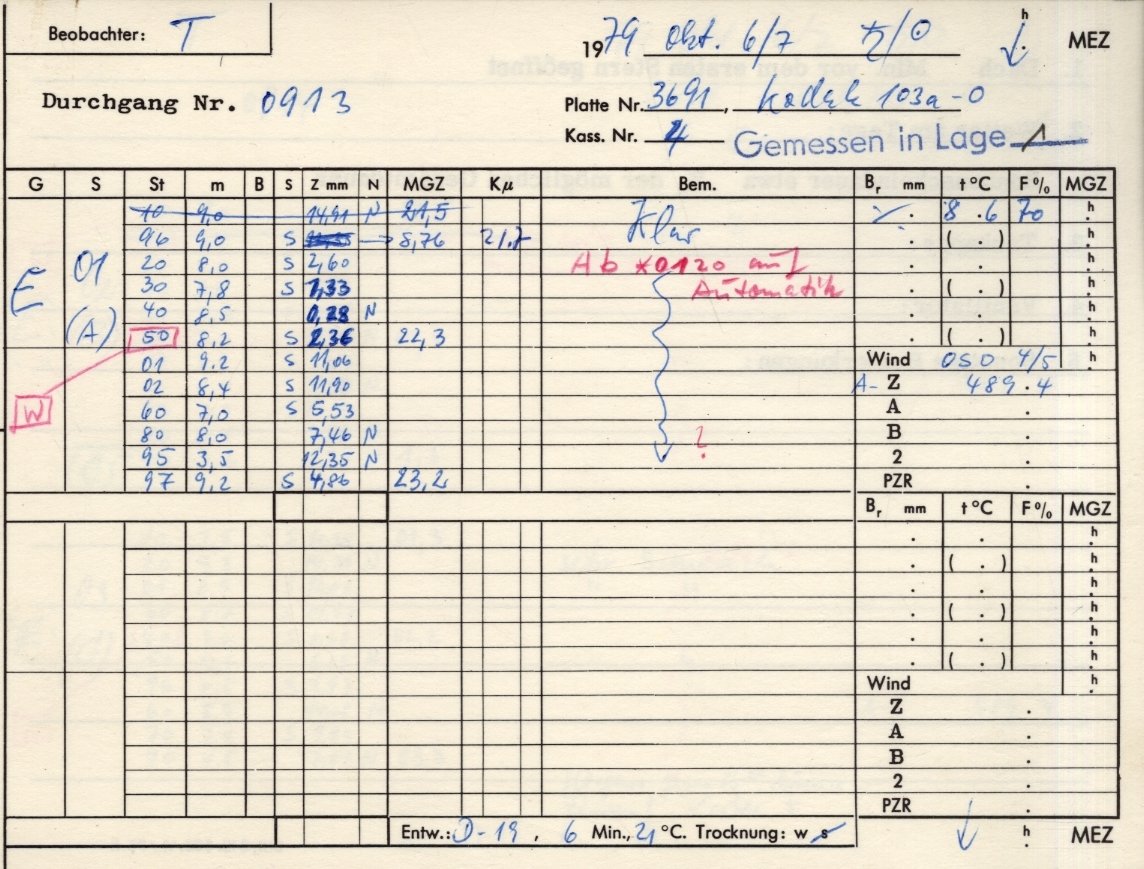 Beobachter: T
1979 Okt. 6/7 ♄/☉ h MEZ
Durchgang Nr. 0913
Platte Nr. 3691, Kodak 103a-O
Kass. Nr. 4 Gemessen in Lage 1
G S St m B S Z mm N MGZ Kμ Bem. Br mm t °C F % MGZ
10 9,0 14,91 N 21,5 Klar 8.6 70 h
96 9,0 S 5,76 21.7 ( . )
E 01 20 8,0 S 2,60 Ab *0120 auf h
30 7,8 S 1,33 Automatik ( . ) h
(A) 40 8,5 0,28 N h
50 8,2 S 2,36 22,3 ( . ) h
01 9,2 S 11,06 Wind OSO 4/5 h
02 8,4 S 11,90 A- Z 489.4
W 60 7,0 S 5,53 A .
80 8,0 7,46 N ? B .
95 3,5 12,35 N 2 .
97 9,2 S 4,86 23,2 PZR .
Br mm t °C F % MGZ
. . h
. ( . ) h
. . h
. ( . ) h
. . h
. ( . ) h
Wind h
Z .
A .
B .
2 .
PZR .
Entw.: D-19, 6 Min., 21 °C. Trocknung: w s h MEZ